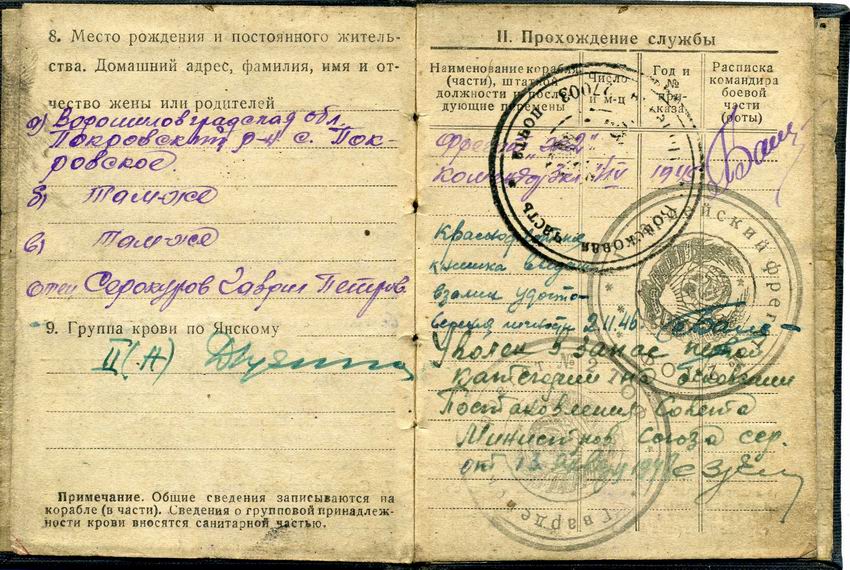 8. Место рождения и постоянного житель-
ства. Домашний адрес, фамилия, имя и от-
чество жены или родителей
а) Ворошиловградская обл.
Покровский р-н с. Пок-
ровское.
б) Там-же
в) Там-же
отец Серокуров Гаврил Петров
9. Группа крови по Янскому
II (А)
Примечание. Общие сведения записываются на
корабле (в части). Сведения о групповой принадлеж-
ности крови вносятся санитарной частью.
II. Прохождение службы
Наименование корабля
(части), штатной
должности и после-
дующие перемены
Число
и м-ц
Год и
№
при-
каза
Расписка
командира
боевой
части
(роты)
Фрегат "ЭК-2"
командор IV 194
Краснофлотская
книжка выдана
взамен удосто-
верения 2.11.46.
Уволен в запас первой
категории на основании
Постановления Совета
Министров Союза сер.
от 12 1948
Войсковая часть * почта 77003